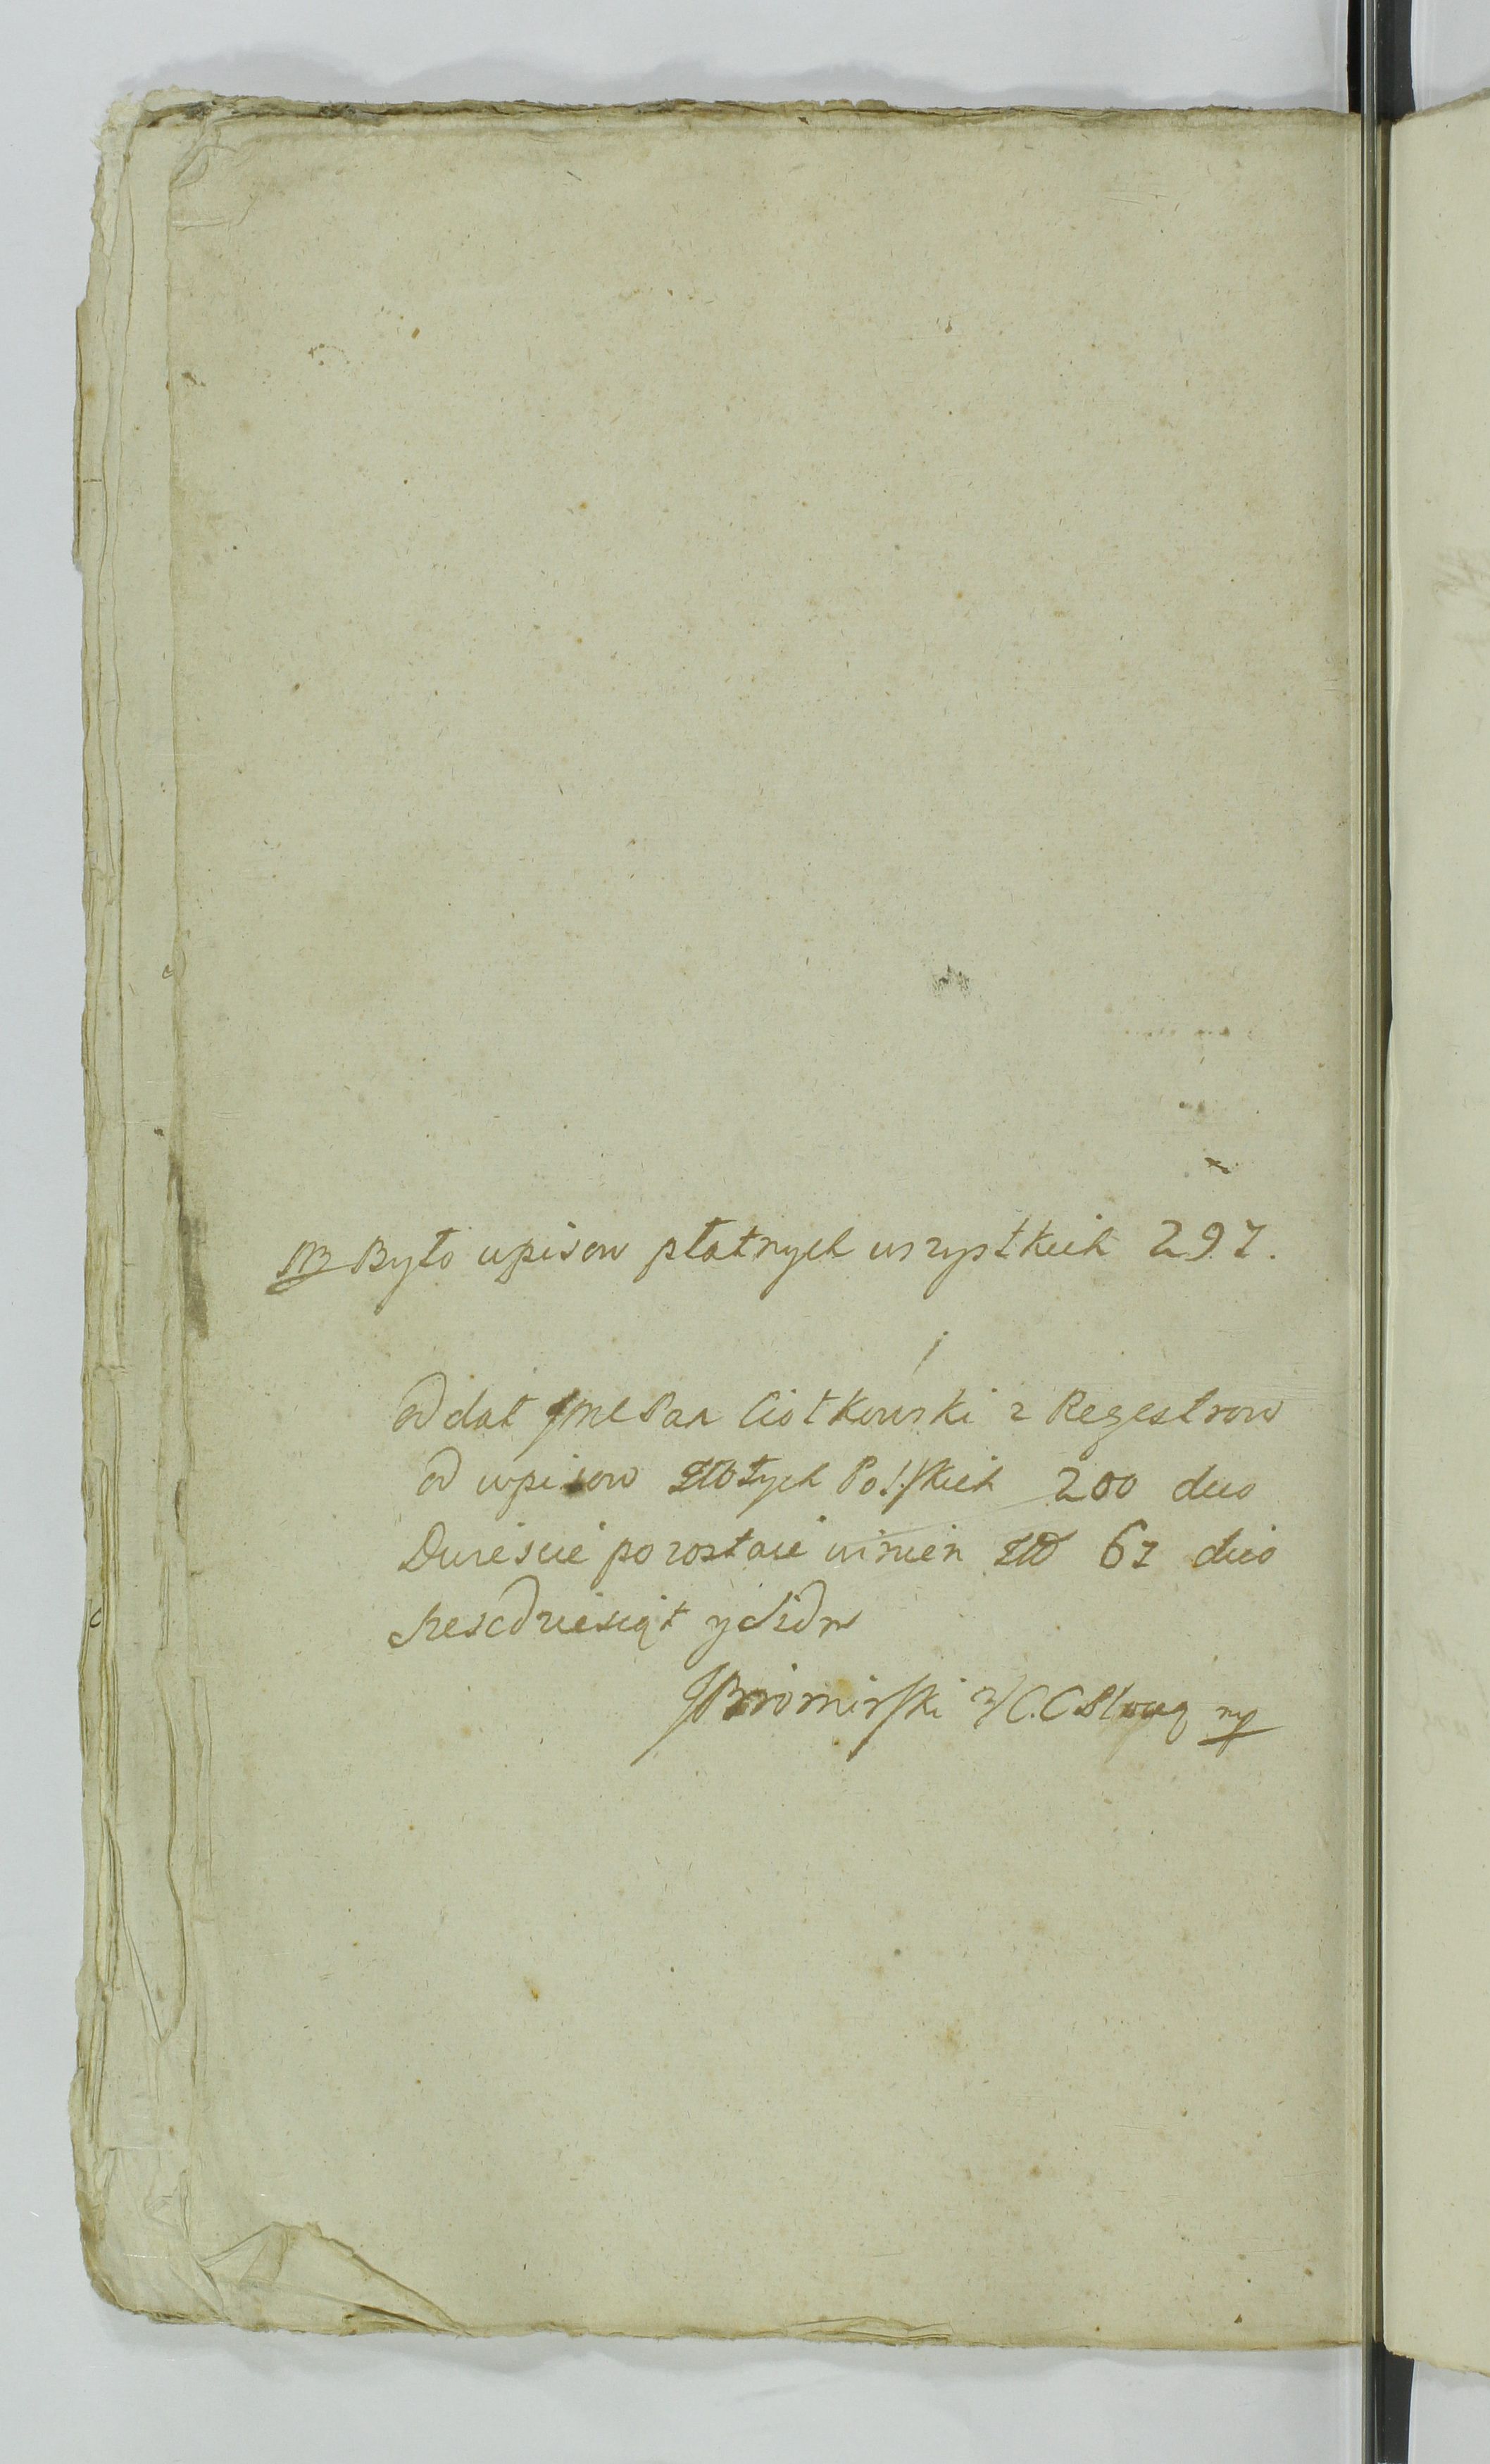 NB Było wpisow płatnych wszystkich 291.
oddał JMC Pan Ciołkowski z Regestrow
od wpisow Złotych Polskich 200 dico
Dwiescie pozostaie winien Zło 61 dico
szescdziesiąt y Jedn